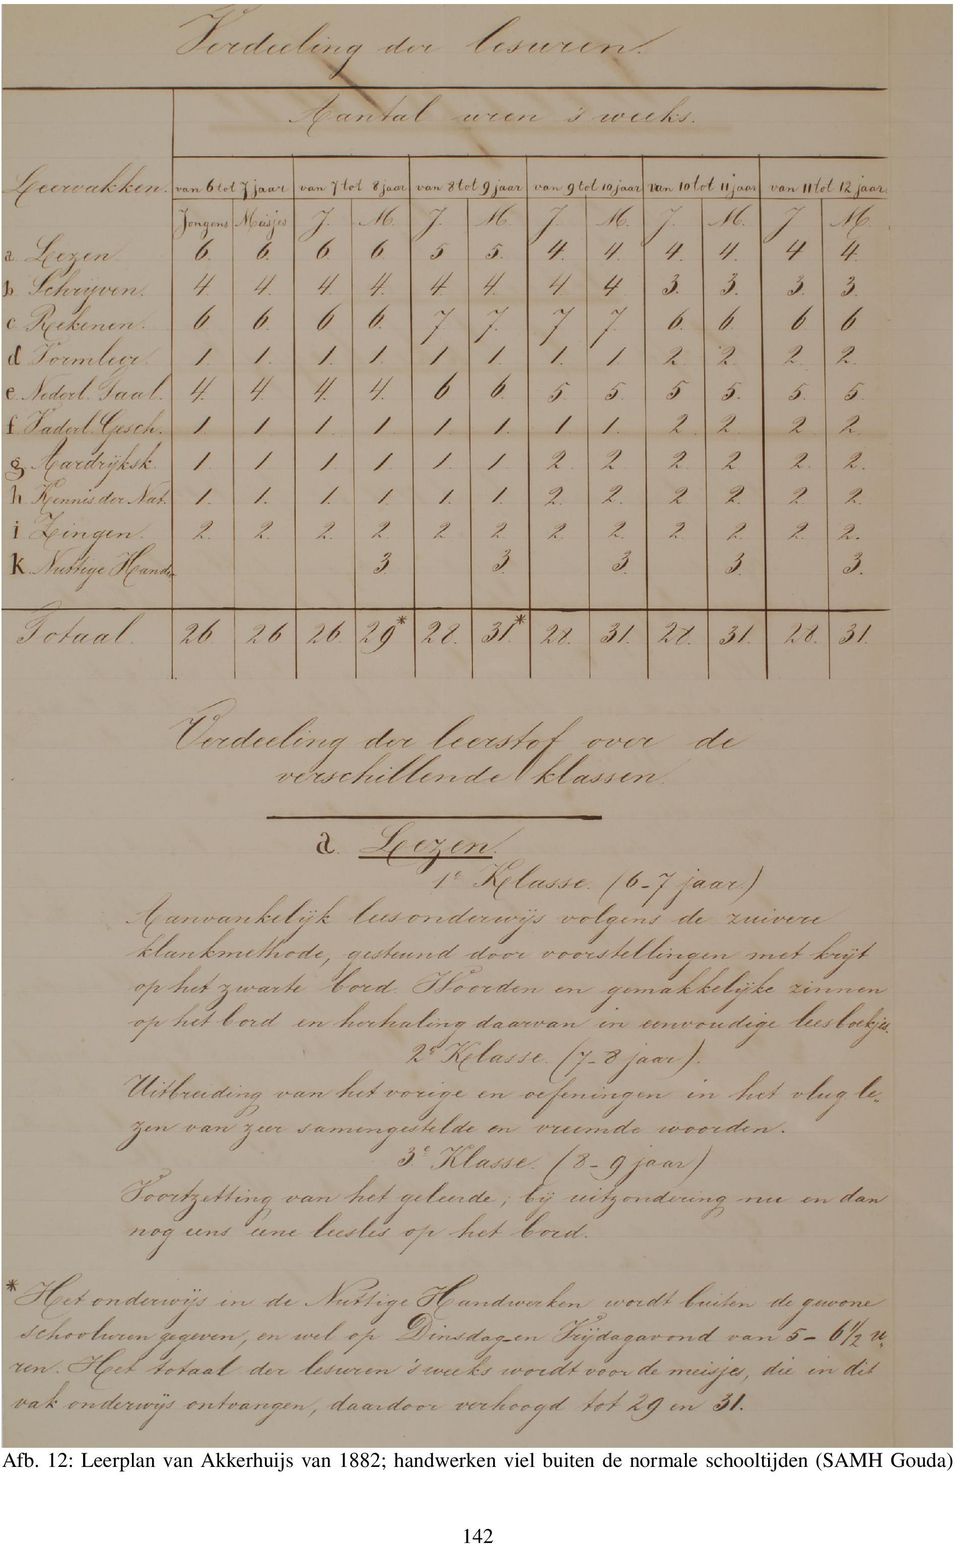 Verdeeling der lesuren.
Aantal uren 's weeks.
Leervakken. van 6 tot 7 jaar van 7 tot 8 jaar van 8 tot 9 jaar van 9 tot 10 jaar van 10 tot 11 jaar van 11 tot 12 jaar
Jongens Meisjes J. M. J. M. J. M. J. M. J M.
a. Lezen 6. 6. 6 6 5 5. 4. 4. 4. 4. 4 4.
b. Schrijven. 4. 4. 4. 4. 4 4. 4 4 3. 3. 3. 3.
c Rekenen. 6 6. 6 6. 7 7. 7 7. 6. 6. 6 6
d Vormleer. 1. 1. 1. 1. 1 1. 1. 1. 2. 2. 2. 2.
e. Nederl. Taal. 4. 4. 4. 4. 6 6. 5 5. 5 5. 5. 5
f. Vaderl. Gesch. 1. 1 1. 1 1. 1. 1 1. 2. 2. 2. 2.
g Aardrijksk. 1. 1 1. 1 1. 1 2. 2 2. 2 2. 2.
h Kennis der Nat. 1. 1. 1. 1. 1. 1. 2. 2. 2 2. 2 2.
i Zingen. 2. 2. 2. 2. 2 2. 2. 2. 2. 2. 2. 2.
k. Nuttige Handw. 3. 3. 3. 3. 3.
Totaal. 26 26 26 29* 28. 31.* 28. 31. 28. 31. 28. 31.
Verdeeling der leerstof over de
verschillende klassen.
a. Lezen.
1e Klasse. (6-7 jaar.)
Aanvankelijk leesonderwijs volgens de zuivere
klankmethode, gesteund door voorstellingen met krijt
op het zwarte bord. Woorden en gemakkelijke zinnen
op het bord en herhaling daarvan in eenvoudige leesboekjes.
2e Klasse. (7-8 jaar).
Uitbreiding van het vorige en oefeningen in het vlug le-
zen van zeer samengestelde en vreemde woorden.
3e Klasse. (8-9 jaar)
Voortzetting van het geleerde; bij uitzondering nu en dan
nog eens eene leesles op het bord.
* Het onderwijs in de Nuttige Handwerken wordt buiten de gewone
schooluren gegeven, en wel op Dinsdag- en Vrijdagavond van 5 - 6 1/2 u-
ren. Het totaal der lesuren 's weeks wordt voor de meisjes, die in dit
vak onderwijs ontvangen, daardoor verhoogd tot 29 en 31.
Afb. 12: Leerplan van Akkerhuijs van 1882; handwerken viel buiten de normale schooltijden (SAMH Gouda)
142